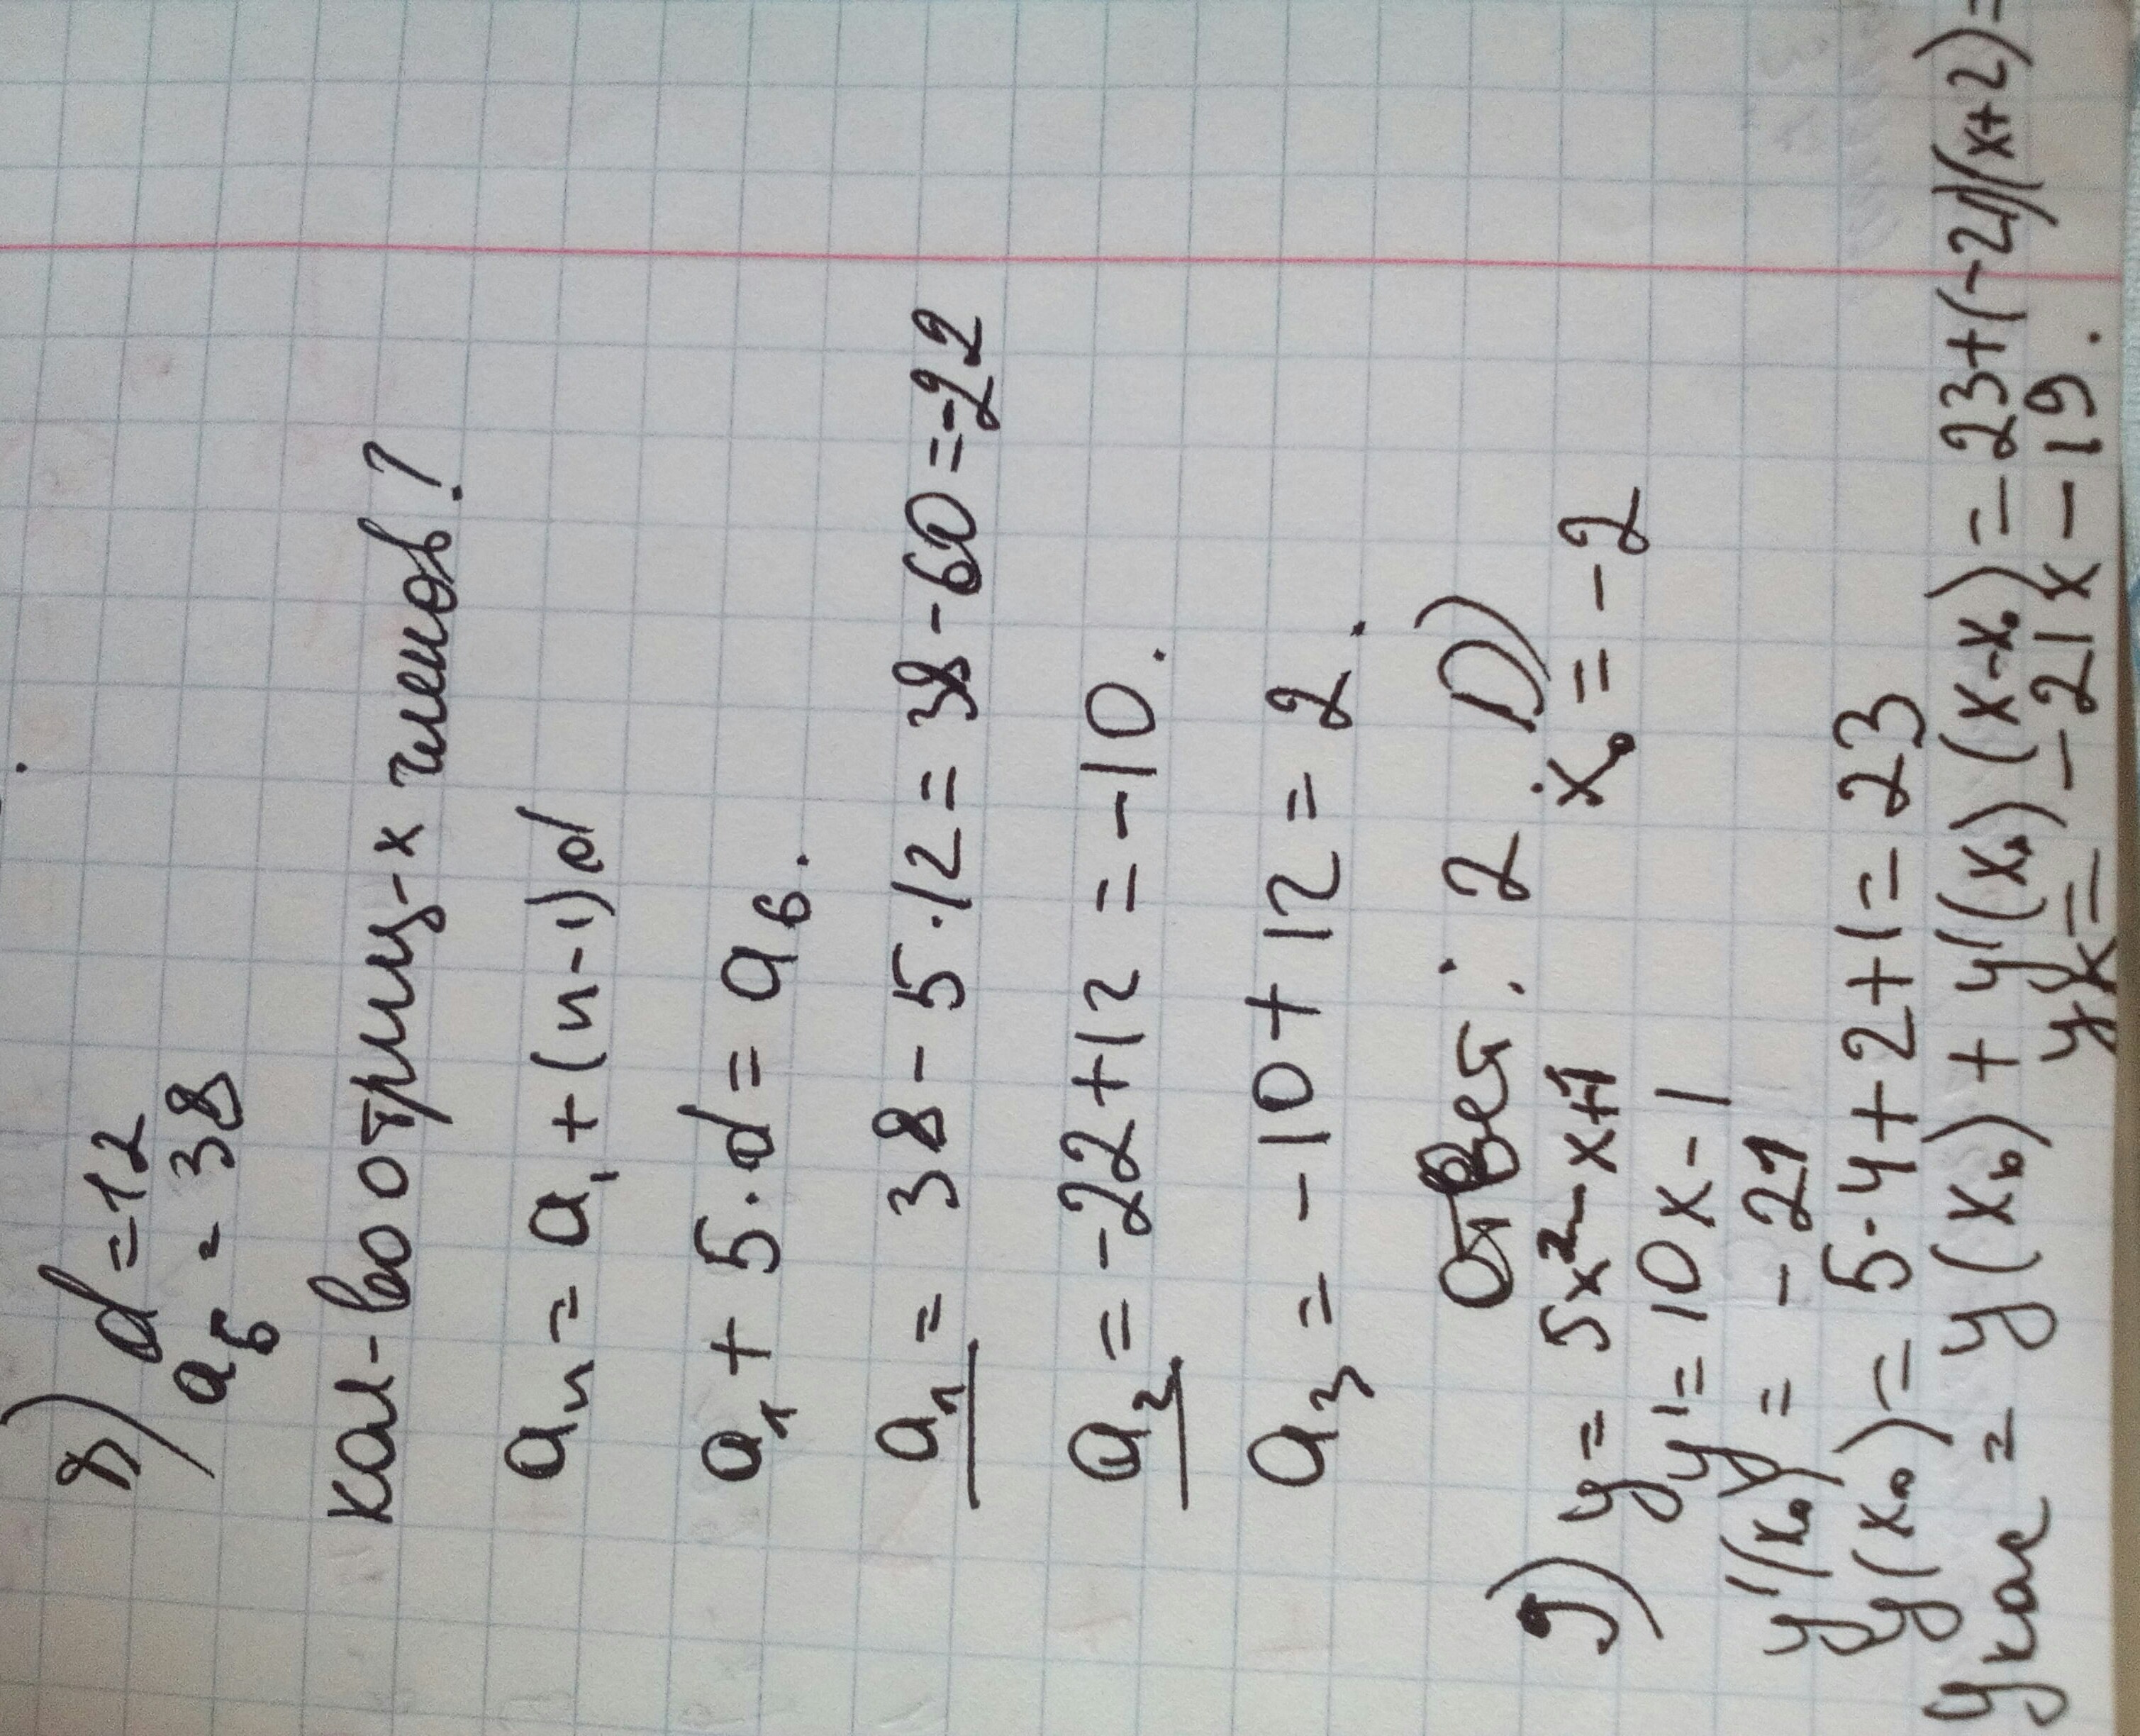 8) d = 12
a₆ = 38
кол-во отриц-х членов?
aₙ = a₁ + (n-1)d
a₁ + 5·d = a₆.
a₁ = 38 - 5·12 = 38 - 60 = -22
a₂ = -22 + 12 = -10.
a₃ = -10 + 12 = 2.
Ответ: 2 D)
9) y = 5x² - x + 1 x₀ = -2
y' = 10x - 1
y'(x₀) = -21
y(x₀) = 5·4 + 2 + 1 = 23
yкас = y(x₀) + y'(x₀)(x - x₀) = 23 + (-21)(x+2) =
yк = -21x - 19.